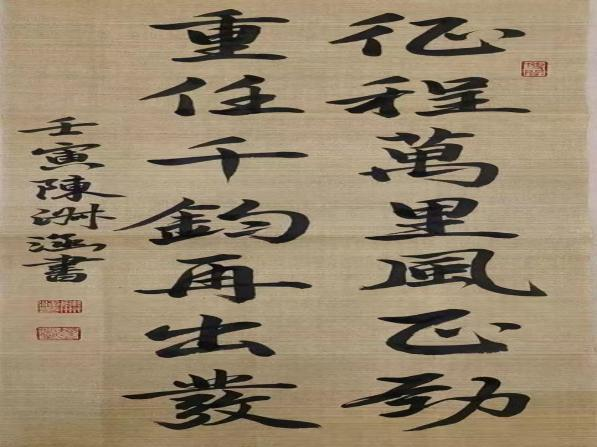 征程萬里風正勁
重任千鈞再出發
壬寅陳淋涵書